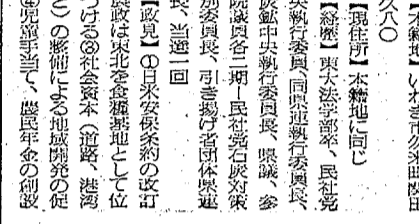 久八〇
【現住所】本籍地に同じ
【経歴】東大法学部卒、民社党
央執行委員、同県連執行委員長、
炭鉱中央執行委員長、県議、参
院議員各二期―民社党石炭対策
別委員長、引き揚げ者団体県連
長、当選一回
【政見】①日米安保条約の改訂
農政は東北を食糧基地として位
つける③社会資本（道路、港湾
ど）の整備による地域開発の促
④児童手当て、農民年金の創設